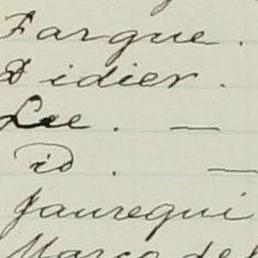 Fargue.
Didier.
Lee. —
id. —
Jauregui